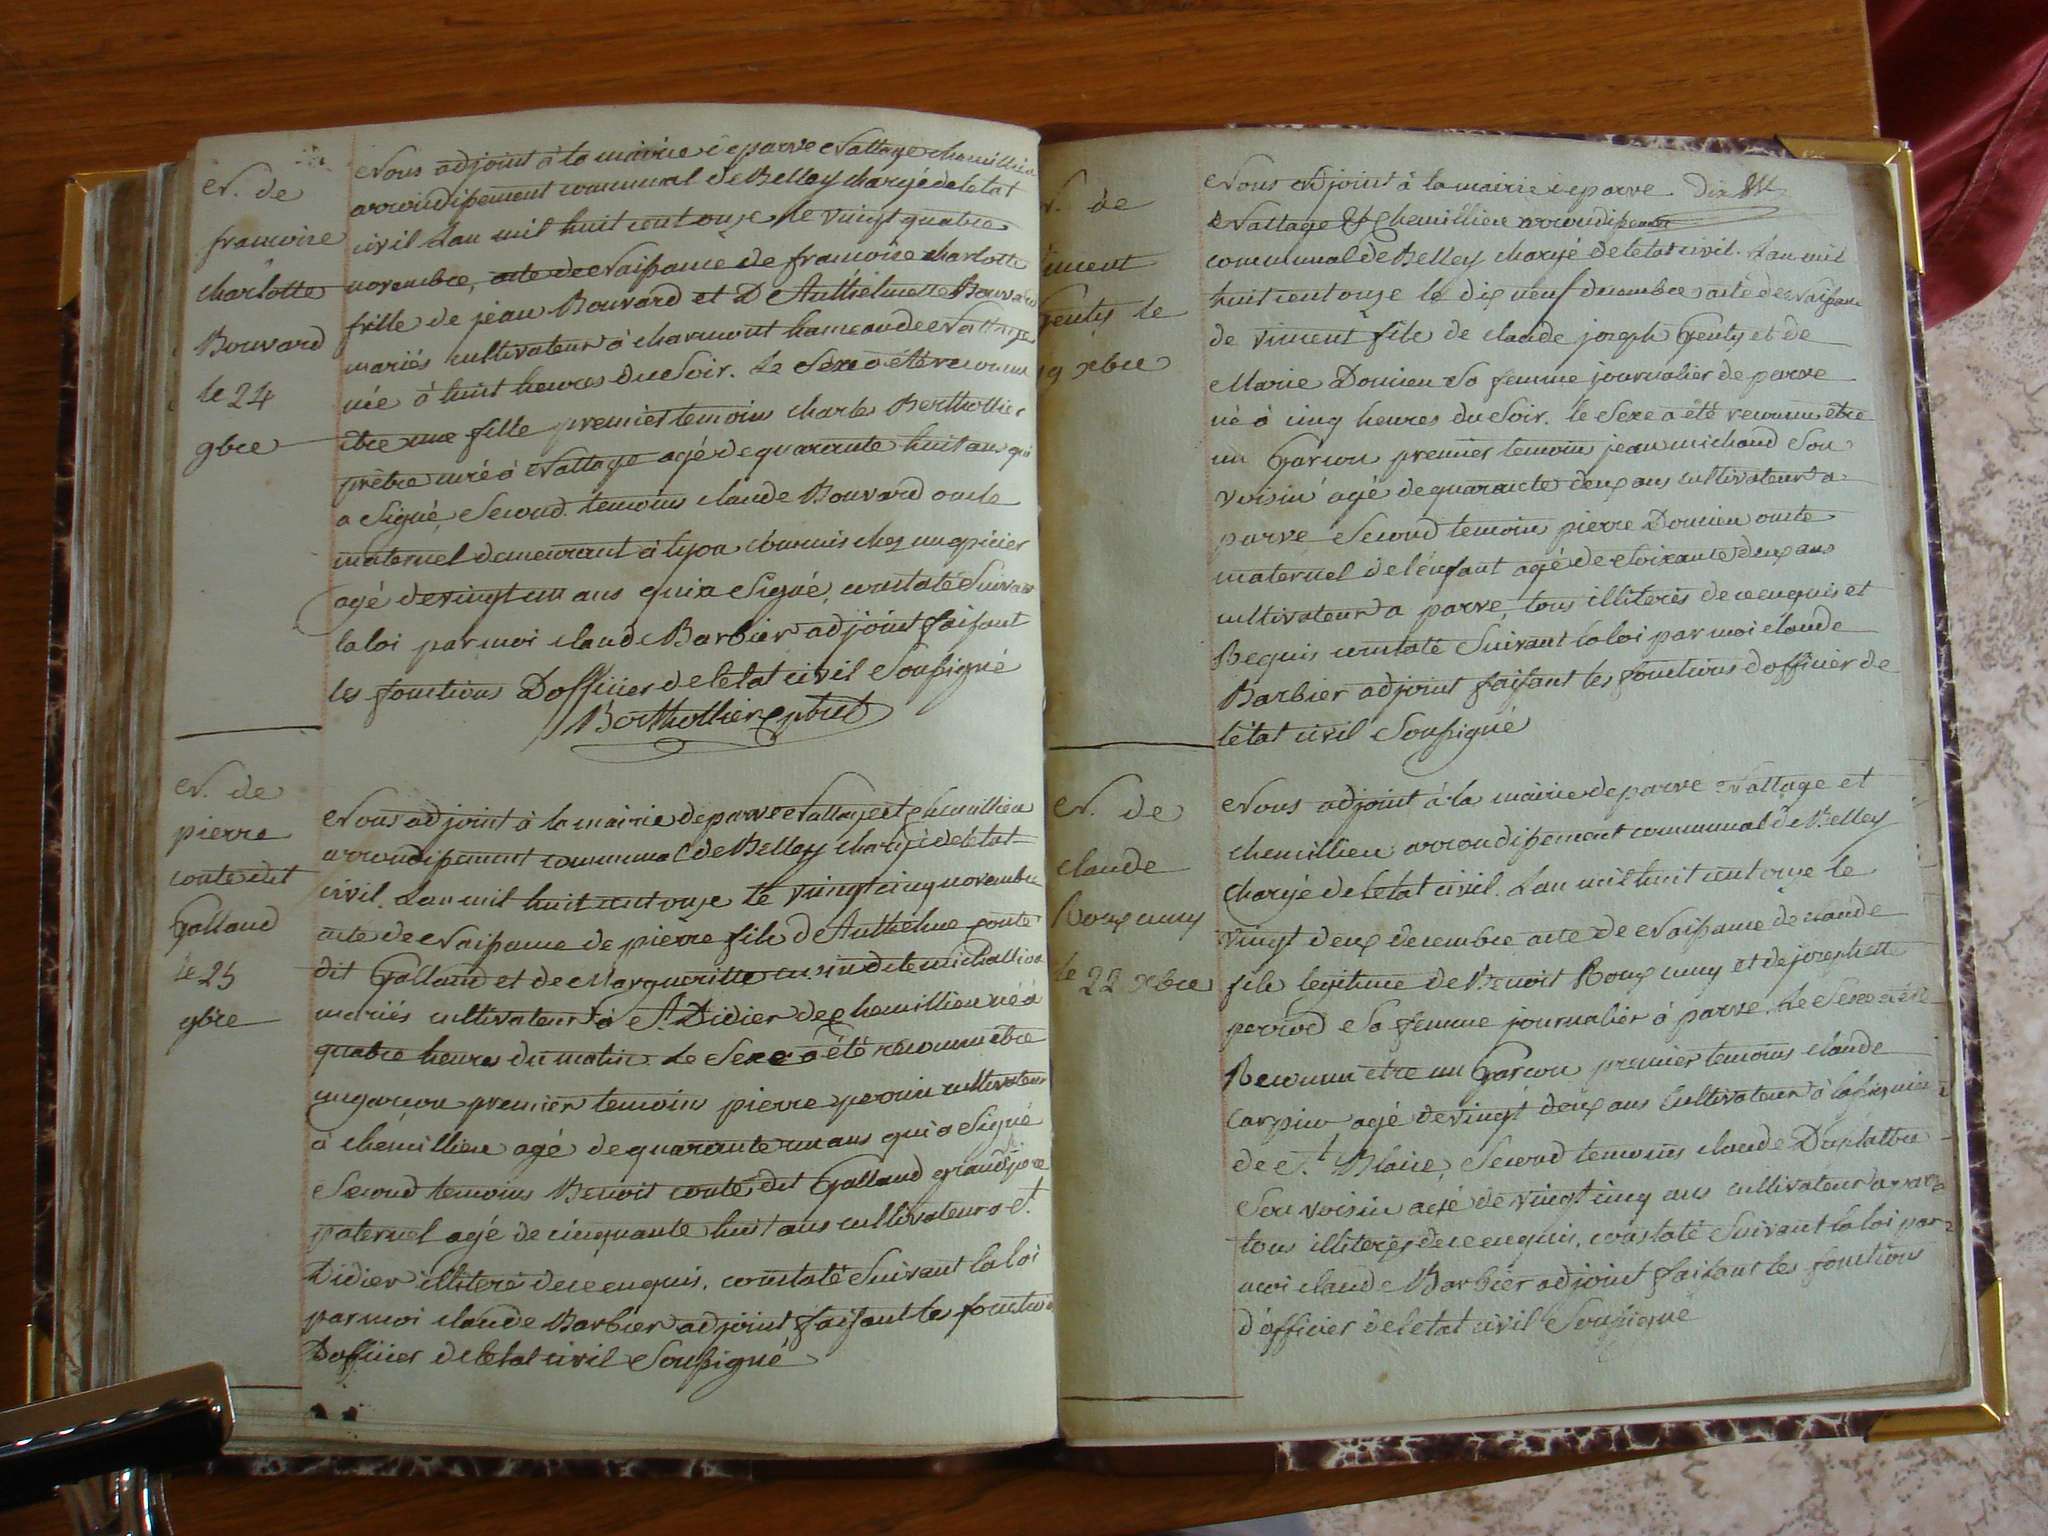 N. de
francoise
charlotte
Bouvard
le 24
9bre
Nous adjoint à la mairie de parve Nattage chemillieu
arrondissement communal de Belley chargé de letat
civil Lan mil huit cent onze le vingt quatre
novembre, acte de Naissance de francoise charlotte
fille de jean Bouvard et D Anthelmette Bouvard
mariés cultivateur à charmont hameau de Nattage
née à huit heures du Soir. Le Sexe a été reconnu
être une fille premier temoin charle Berthollier
prêtre curé à Nattage agé de quarante huit ans qui
a Signé, Second temoins claude Bouvard oncle
maternel demeurant à lyon commis chez un epicier
agé de vingt un ans qui a Signé, constaté Suivant
la loi par moi claude Barbier adjoint faisant
les fonctions Dofficier de letat civil Soussigné
Berthollier
N. de
pierre
conte dit
Galland
le 25
9bre
Nous adjoint à la mairie de parve Nattage et chemillieu
arrondissement communal de Belley chargé de letat
civil. Lan mil huit cent onze le vingt cinq novembre
acte de Naissance de pierre fils d Anthelme conte
dit Galland et de Margueritte
mariés cultivateur à St. Didier de chemillieu né à
quatre heures du matin Le Sexe a été reconnu etre
un garcon premier temoin pierre perrin cultivateur
à chemillieu agé de quarante un ans qui a Signé
Second temoins Benoit conte dit Galland grand pere
paternel agé de cinquante huit ans cultivateur a St.
Didier illiteré de ce enquis. constaté Suivant la loi
par moi claude Barbier adjoint faisant les fonctions
Dofficier de letat civil Soussigné
N. de
vincent
Genty le
19 xbre
Nous adjoint à la mairie de parve Dix
Nattage et Chemillieu arrondissement
communal de Belley chargé de letat civil. Lan mil
huit cent onze le dix neuf decembre acte de Naissance
de vincent fils de claude joseph Genty et de
Marie Doucien Sa femme journalier de parve
né à cinq heures du Soir. le Sexe a été reconnu être
un Garcon premier temoin jean michaud Son
voisin agé de quarante deux ans cultivateur a
parve Second temoin pierre Doucien oncle
maternel de l'enfant agé de Soixante deux ans
cultivateur a parve, tous illiterés de ce enquis et
Requis constaté Suivant la loi par moi claude
Barbier adjoint faisant les fonctions d'officier de
l'état civil Soussigné
N. de
claude
Roux cumy
le 22 xbre
Nous adjoint à la mairie de parve Nattage et
chemillieu arrondissement communal de Belley
chargé de letat civil. Lan mil huit cent onze le
vingt deux decembre acte de Naissance de claude
fils legitime de Benoit Roux cumy et de josephette
perrod Sa femme journalier à parve. Le Sexe a été
Reconnu etre un Garcon premier temoins claude
carpin agé de vingt deux ans Cultivateur à
de St. Blaise, Second temoins claude Duplattre
Son voisin agé de vingt cinq ans cultivateur a parve
tous illiterés de ce enquis, constaté Suivant la loi par
moi claude Barbier adjoint faisant les fonctions
d'officier de letat civil Soussigné